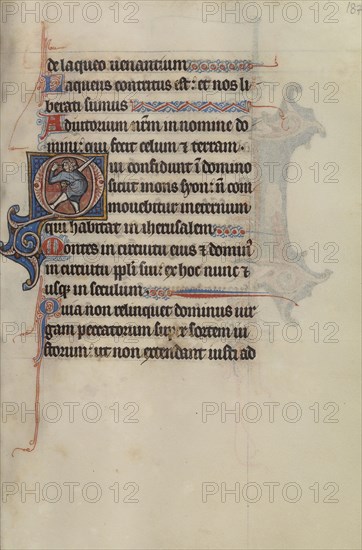 de laqueo uenantium
Laqueus contritus est: et nos li
berati sumus
Adiutorium nrm in nomine do
mini: qui fecit celum et terram
Qui confidunt in domino
sicut mons syon: non com
mouebitur in eternum
qui habitat in iherusalem
Montes in circuitu eius et dominus
in circuitu ppli sui: ex hoc nunc et
usq in seculum
Quia non relinquet dominus uir
gam peccatorum super sortem iu
storum: ut non extendant iusti ad
PHOTO 12 PHOTO 12 PHOTO 12
PHOTO 12 PHOTO 12 PHOTO 12
PHOTO 12 PHOTO 12 PHOTO 12
PHOTO 12 PHOTO 12 PHOTO 12
PHOTO 12 PHOTO 12 PHOTO 12
PHOTO 12 PHOTO 12 PHOTO 12
PHOTO 12 PHOTO 12 PHOTO 12